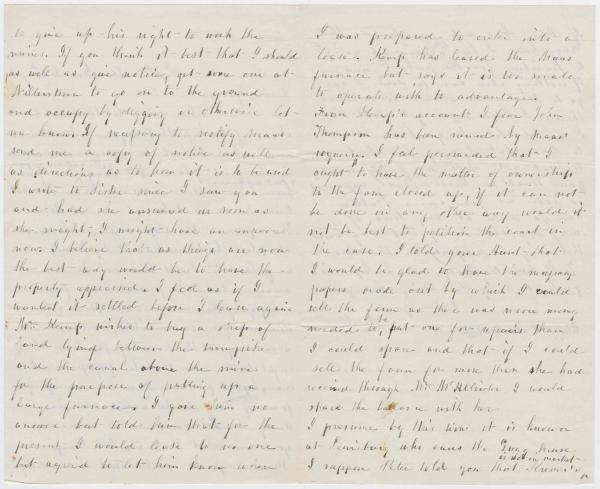 to give up his right to work the
mines. If you think it best that I should
as well as give notice, get some one at
Millerstown to go on to the ground
and occupy by digging or otherwise let
me know. If necessary to notify Maus
send me a copy of notice as well
as directions as to how it is to be used
I wrote to Sister since I saw you
and had she answered as soon as
she might, I might have an answer
now. I believe that as things are now
the best way would be to have the
property appraised. I feel as if I
wanted it settled before I leave again
Mr. Kemp wishes to buy a strip of
land lying between the turnpike
and the canal above the mine
for the purpose of putting up a
large furnace. I gave him no
answer but told him that for the
present I would lease to no one
but agreed to let him know when
I was prepared to enter into a
lease. Kemp has leased the Maus
furnace but says it is too small
to operate with to advantage.
From Kemp's account I fear John
Thompson has been ruined by Maus'
roguery. I feel persuaded that I
ought to have the matter of ownership
to the farm closed up, if it can not
be done in any other way would it
not be best to petition the court in
the case. I told your Aunt that
I would be glad to have the necessary
papers made out by which I could
sell the farm as there was more money
needed to be put on for repairs than
I could spare and that if I could
sell the farm for more than she had
received through Mr. McAllister I would
share the balance with her
I presume by this time it is known
at Lewisburg who owns the Gregg house
is not in market
I suppose Peter told you that